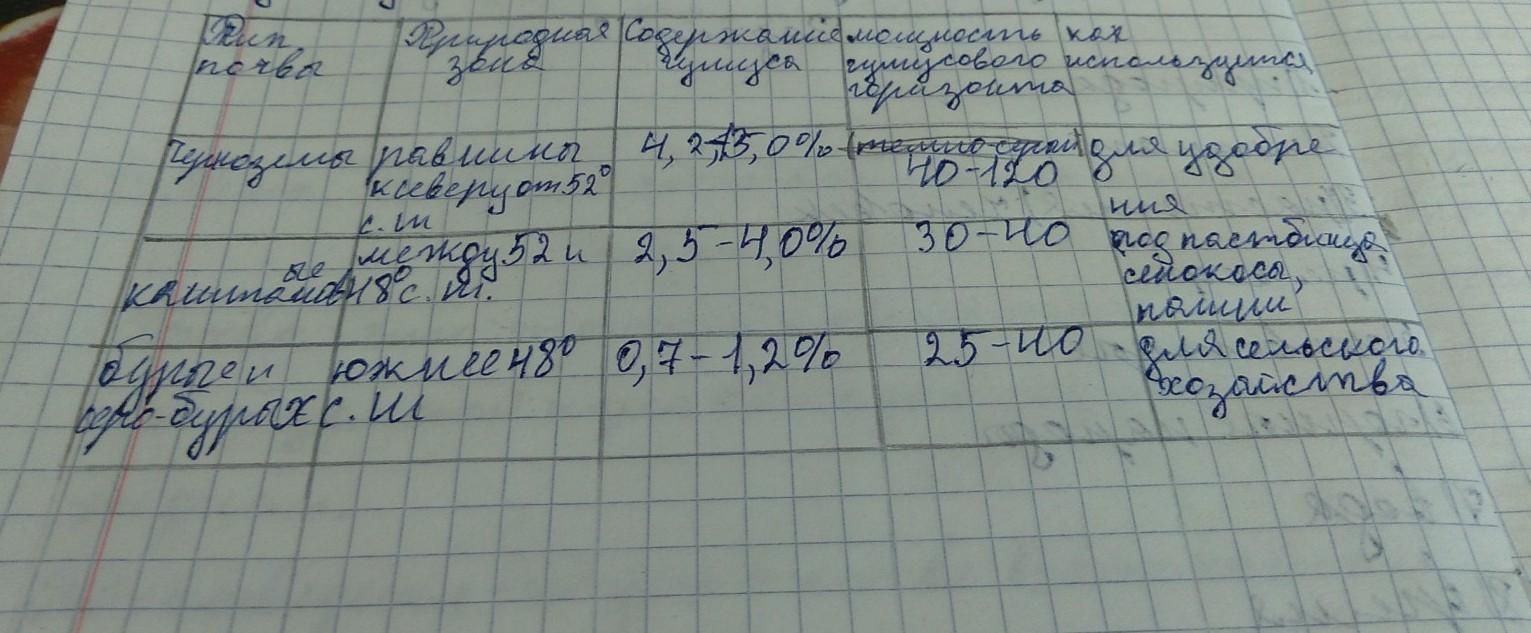 Тип Природная Содержание мощность как
почвы зона гумуса гумусового используется
горизонта
Черноземы равнины 4,2-15,0% для удобре
к северу от 52° 40-120
с.ш ния
между 52 и 2,5-4,0% 30-40 под пастбища,
каштановые 48° с.ш. сенокосы,
пашни
бурые и южнее 48° 0,7-1,2% 25-40 для сельского
серо-бурых с.ш хозяйства